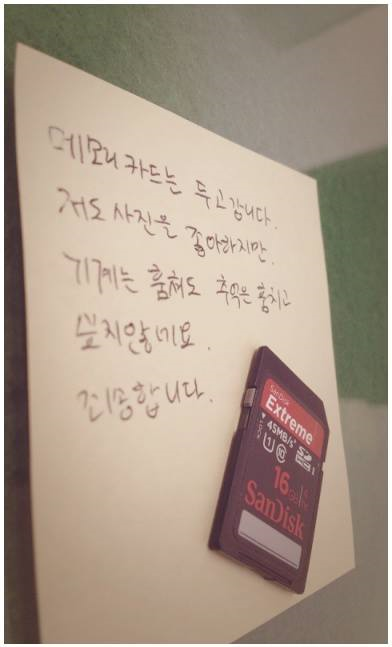 메모리 카드는 두고갑니다.
저도 사진을 좋아하지만.
기계는 훔쳐도 추억은 훔치고
싶지않네요.
죄송합니다.
SanDisk
Extreme
45MB/s
1 10
16 GB
SanDisk